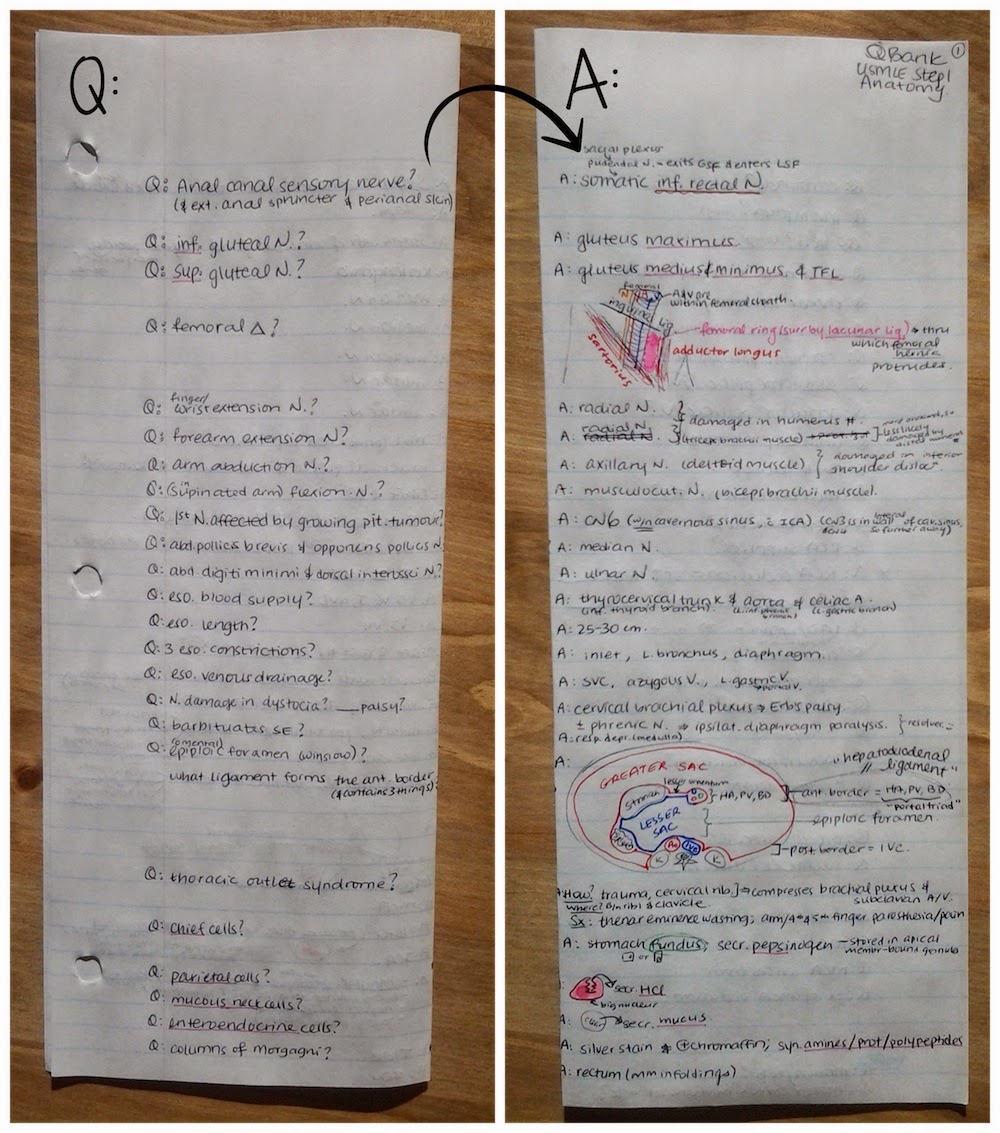 Q:
Q: Anal canal sensory nerve?
(& ext. anal sphuncter & perianal skin)
Q: inf. gluteal N.?
Q: sup. gluteal N.?
Q: femoral Δ?
finger/
Q: wrist extension N.?
Q: forearm extension N?
Q: arm abduction N.?
Q: (supinated arm) flexion N.?
Q: 1st N. affected by growing pit. tumour?
Q: abd. pollicis brevis & opponens pollicis N
Q: abd. digiti minimi & dorsal interossci N.?
Q: eso. blood supply?
Q: eso. length?
Q: 3 eso. constrictions?
Q: eso. venous drainage?
Q: N. damage in dystocia? ___ palsy?
Q: barbituates SE?
(omental)
Q: epiploic foramen (winslow)?
what ligament forms the ant. border
(& contains 3 things)?
Q: thoracic outlet syndrome?
Q: chief cells?
Q: parietal cells?
Q: mucous neck cells?
Q: enteroendocrine cells?
Q: columns of morgagni?
A:
QBank 1
USMLE Step 1
Anatomy
sacral plexus
pudendal N. → exits GSF & enters LSF
A: somatic inf. rectal N.
A: gluteus maximus.
A: gluteus medius & minimus, & TFL
femoral
N A V
A & V are
within femoral sheath.
inguinal lig
femoral ring (surr by lacunar lig) → thru
which femoral
hernia
protrudes.
sartorius
adductor longus
A: radial N.
damaged in humerus #.
radial N.
A: radial N. (tricep brachii muscle)
less likely
damaged by
A: axillary N. (deltoid muscle) damaged in inferior
shoulder disloc
A: musculocut. N. (biceps brachii muscle).
A: CN6 (w/in cavernous sinus, c̄ ICA) (CN3 is in lateral wall of cav. sinus,
so further away)
A: median N.
A: ulnar N.
A: thyrocervical trunk & aorta & celiac A.
(inf. thyroid branch) (L. inf. phrenic branch) (L. gastric branch)
A: 25-30 cm.
A: inlet, L. bronchus, diaphragm.
A: SVC, azygous V., L. gastric V.
→ portal V.
A: cervical brachial plexus → Erb's palsy
± phrenic N. ⇒ ipsilat. diaphragm paralysis. } resolves
A: resp. depr. (medulla)
A:
GREATER SAC
"hepatoduodenal
ligament"
lesser omentum
stomach
HA, PV, BD
ant. border = HA, PV, BD
"portal triad"
LESSER
SAC
epiploic foramen.
spleen
Ao IVC
K K
post border = IVC.
How? trauma, cervical rib. ] → compresses brachial plexus &
subclavian A/V.
where? b/n rib 1 & clavicle
Sx: thenar eminence wasting; arm/4th & 5th finger paresthesia/pain
A: stomach fundus; secr. pepsinogen → stored in apical
membr-bound granules
or
secr. HCl
big nucleus
A: secr. mucus
A: silver stain & ⊕ chromaffin; syn. amines/prot/polypeptides
A: rectum (mm infoldings)